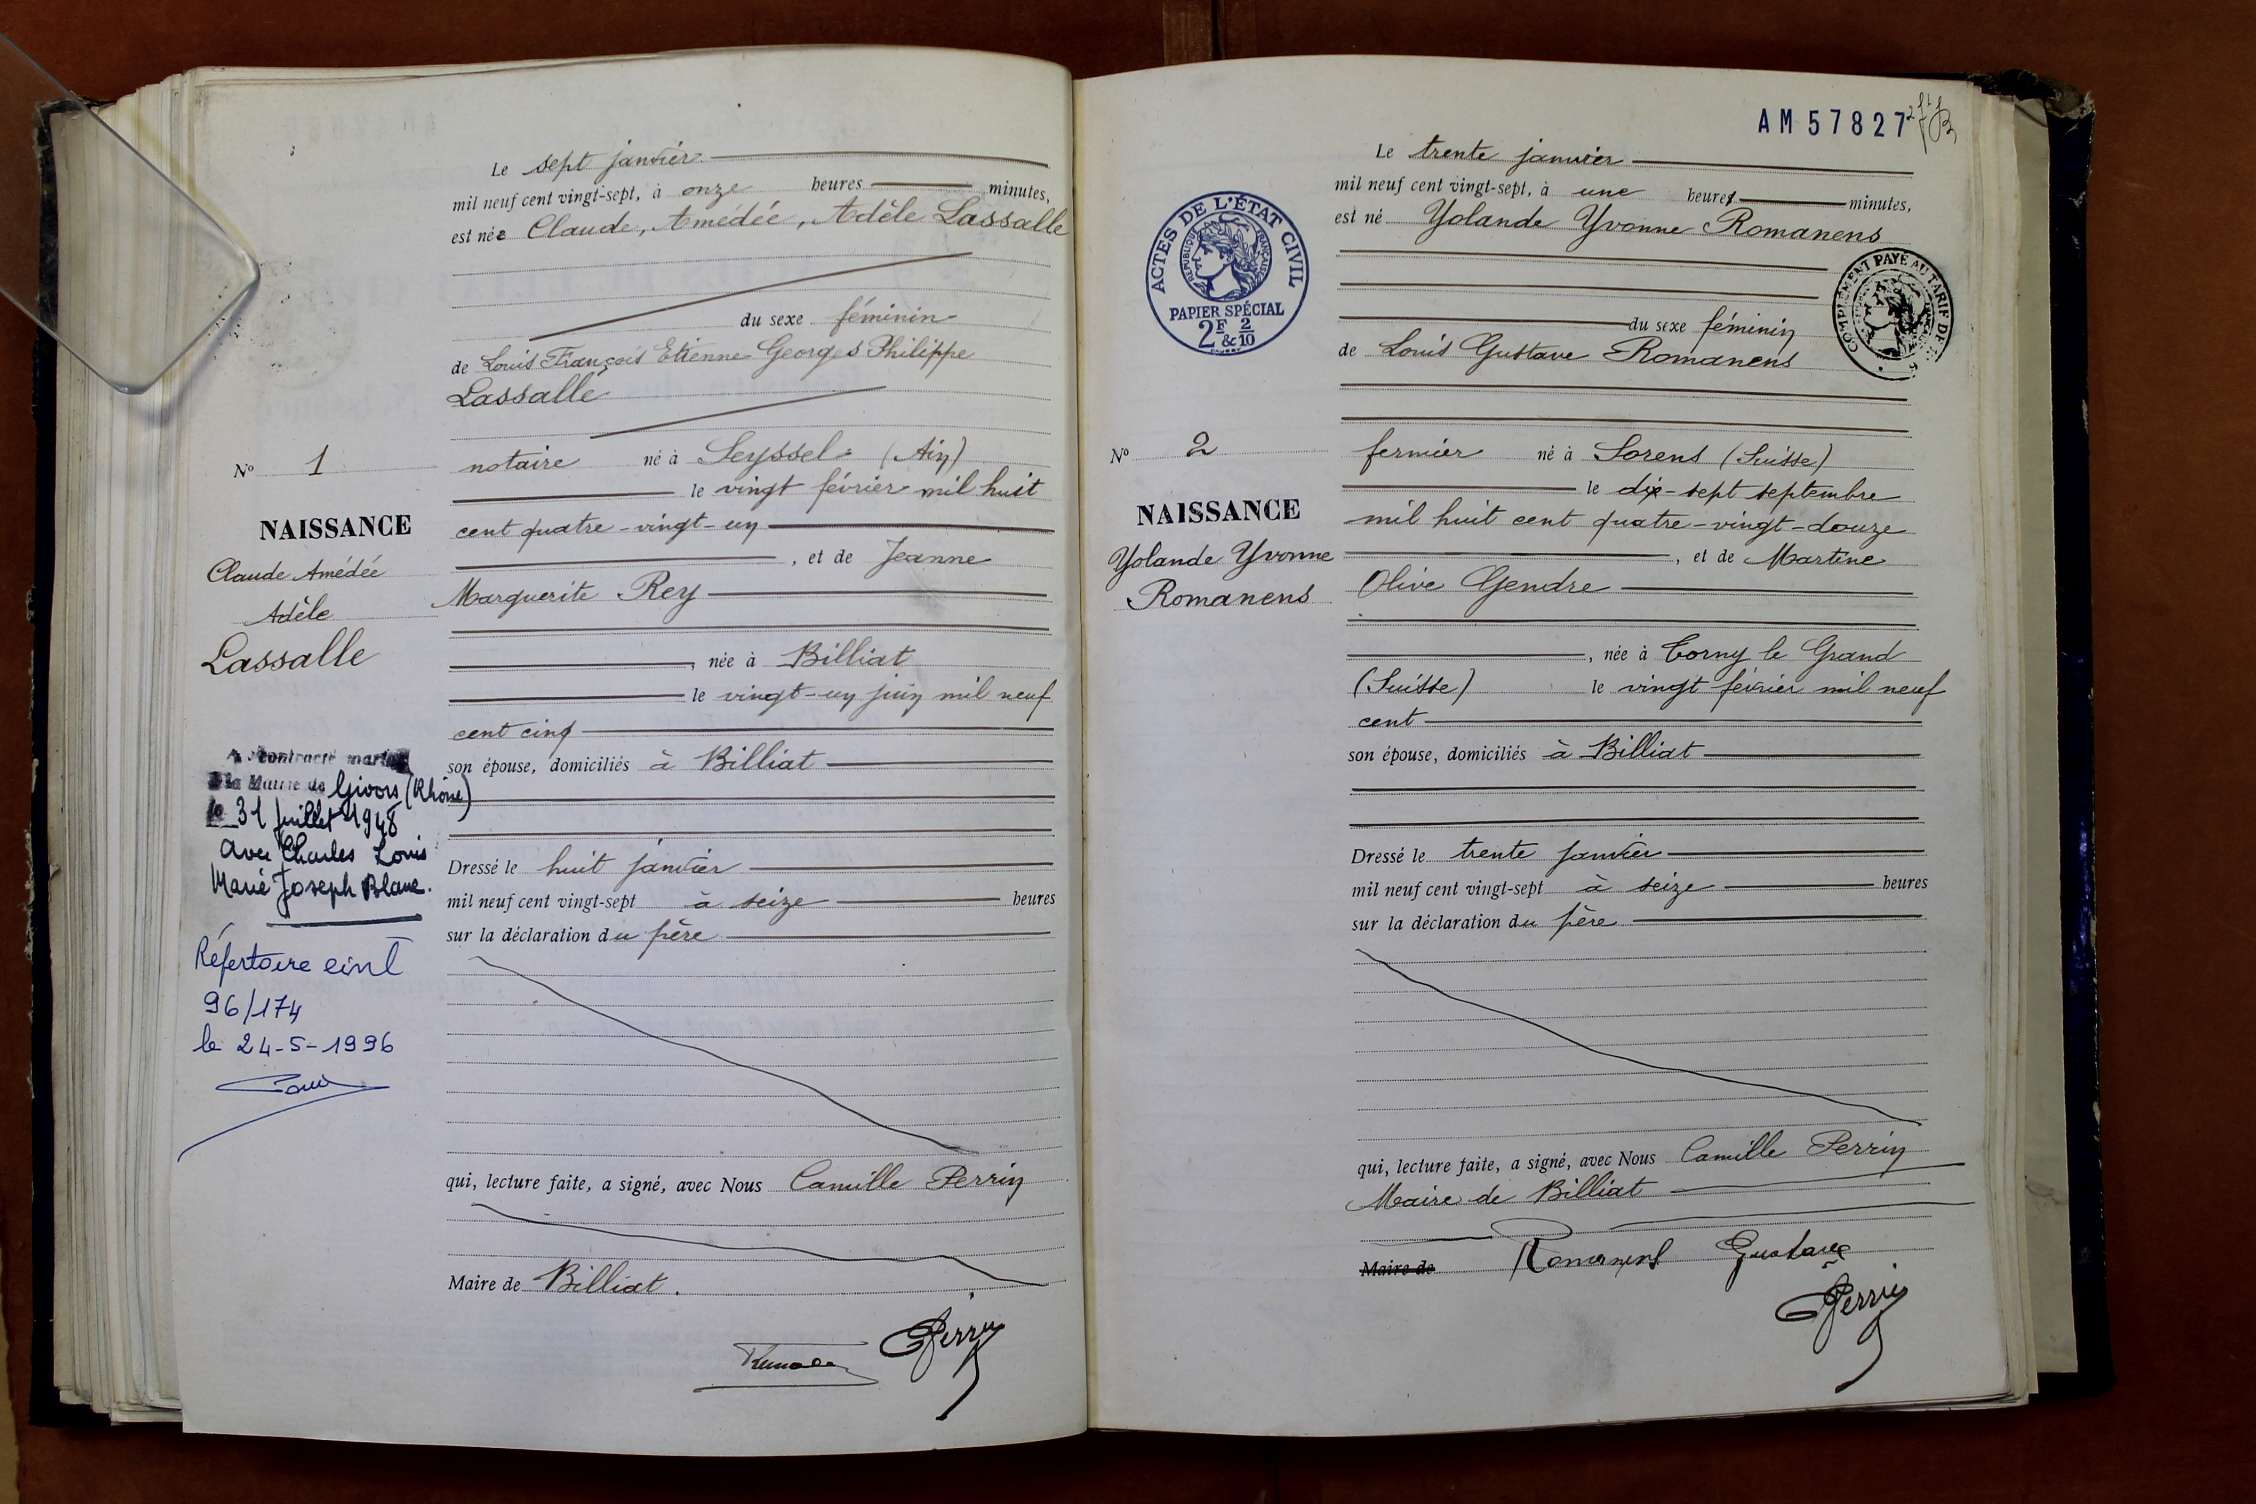 Le sept janvier
mil neuf cent vingt-sept, à onze heures minutes,
est née Claude, Amédée, Adèle Lassalle
du sexe féminin
de Louis François Etienne Georges Philippe
Lassalle
notaire né à Seyssel (Ain)
le vingt février mil huit
cent quatre-vingt-un
, et de Jeanne
Marguerite Rey
, née à Billiat
le vingt-un juin mil neuf
cent cinq
son épouse, domiciliés à Billiat
Dressé le huit janvier
mil neuf cent vingt-sept à seize heures
sur la déclaration du père
qui, lecture faite, a signé, avec Nous Camille Perrin
Maire de Billiat.
Perrin
No 1
NAISSANCE
Claude Amédée
Adèle
Lassalle
A contracté mariage
à la Mairie de Givors (Rhône)
le 31 Juillet 1948
avec Charles Louis
Marie Joseph Blanc.
Répertoire civil
96/174
le 24-5-1996
AM 57827
Le trente janvier
mil neuf cent vingt-sept, à une heure minutes,
est né Yolande Yvonne Romanens
du sexe féminin
de Louis Gustave Romanens
fermier né à Sorens (Suisse)
le dix-sept septembre
mil huit cent quatre-vingt-douze
, et de Martine
Olive Gendre
, née à Torny le Grand
(Suisse) le vingt février mil neuf
cent
son épouse, domiciliés à Billiat
Dressé le trente janvier
mil neuf cent vingt-sept à seize heures
sur la déclaration du père
qui, lecture faite, a signé, avec Nous Camille Perrin
Maire de Billiat
Maire de Romanens Gustave
Perrin
No 2
NAISSANCE
Yolande Yvonne
Romanens
ACTES DE L'ÉTAT CIVIL
RÉPUBLIQUE FRANÇAISE
PAPIER SPÉCIAL
2F & 2/10
COMPLÉMENT PAYÉ AU TARIF DE